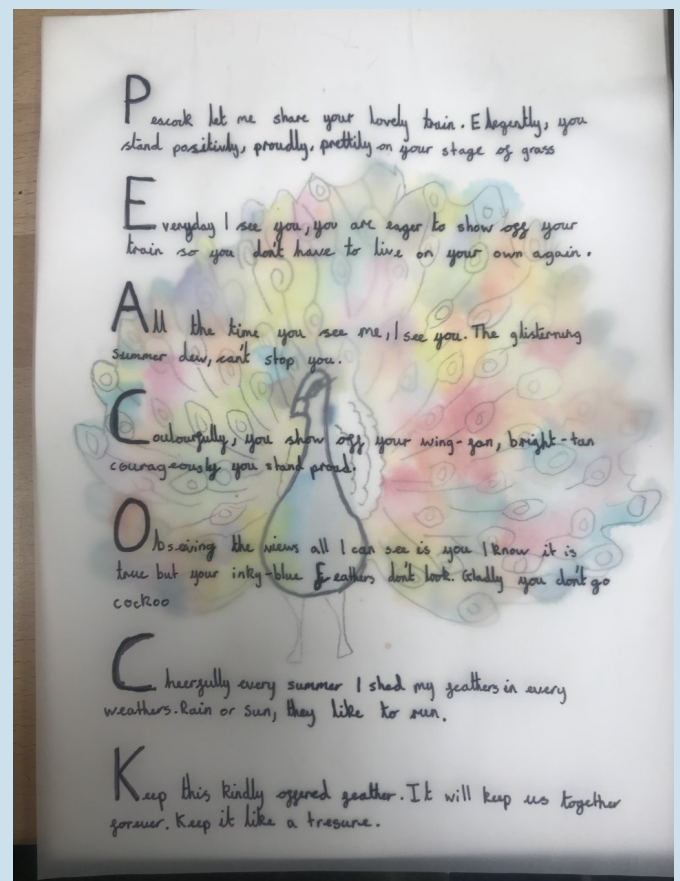 Peacock let me share your lovely train. Elegently, you
stand positivly, proudly, prettily on your stage of grass
Everyday I see you, you are eager to show off your
train so you don't have to live on your own again.
All the time you see me, I see you. The glisterning
summer dew, can't stop you.
Coulourfully, you show off your wing-fan, bright-tan
courageously you stand proud.
Obseving the views all I can see is you I know it is
true but your inky-blue feathers don't look. Gladly you don't go
cockoo
Cheerfully every summer I shed my feathers in every
weathers. Rain or Sun, they like to run.
Keep this kindly offered feather. It will keep us together
forever. Keep it like a tresure.